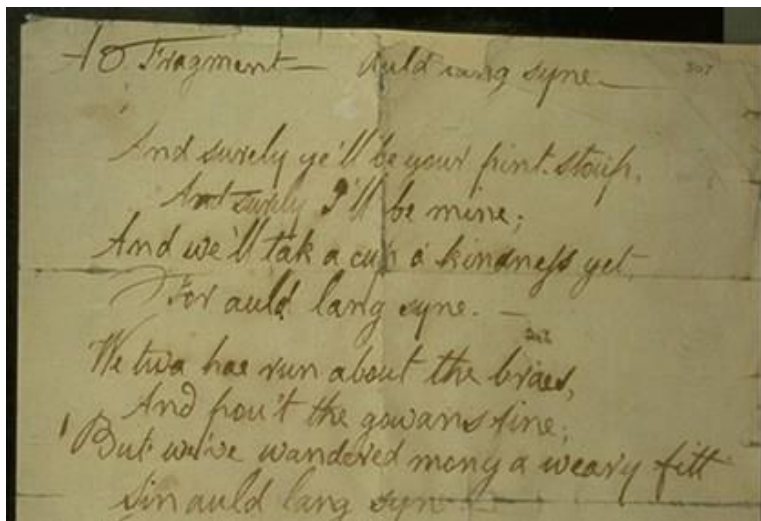 A Fragment — Auld lang syne — 507
And surely ye'll be your pint-stoup,
And surely I'll be mine;
And we'll tak a cup o' kindness yet
For auld lang syne. —
We twa hae run about the braes,
And pou't the gowans fine;
But we've wandered mony a weary fitt
Sin auld lang syn